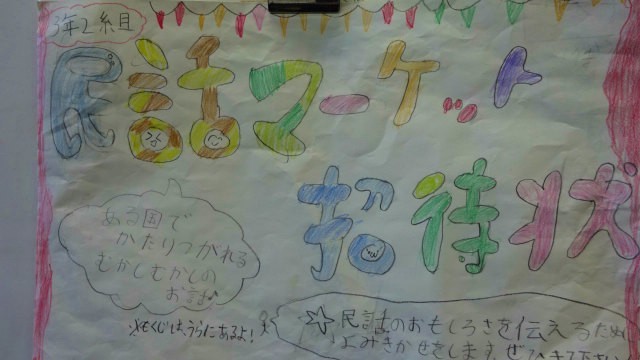 3年2組目
民話マーケット
招待状
ある国で
かたりつがれる
むかしむかしの
お話
※もくじは、うらにあるよ!
☆民話のおもしろさを伝えるため
よみきかせをします。ぜひ